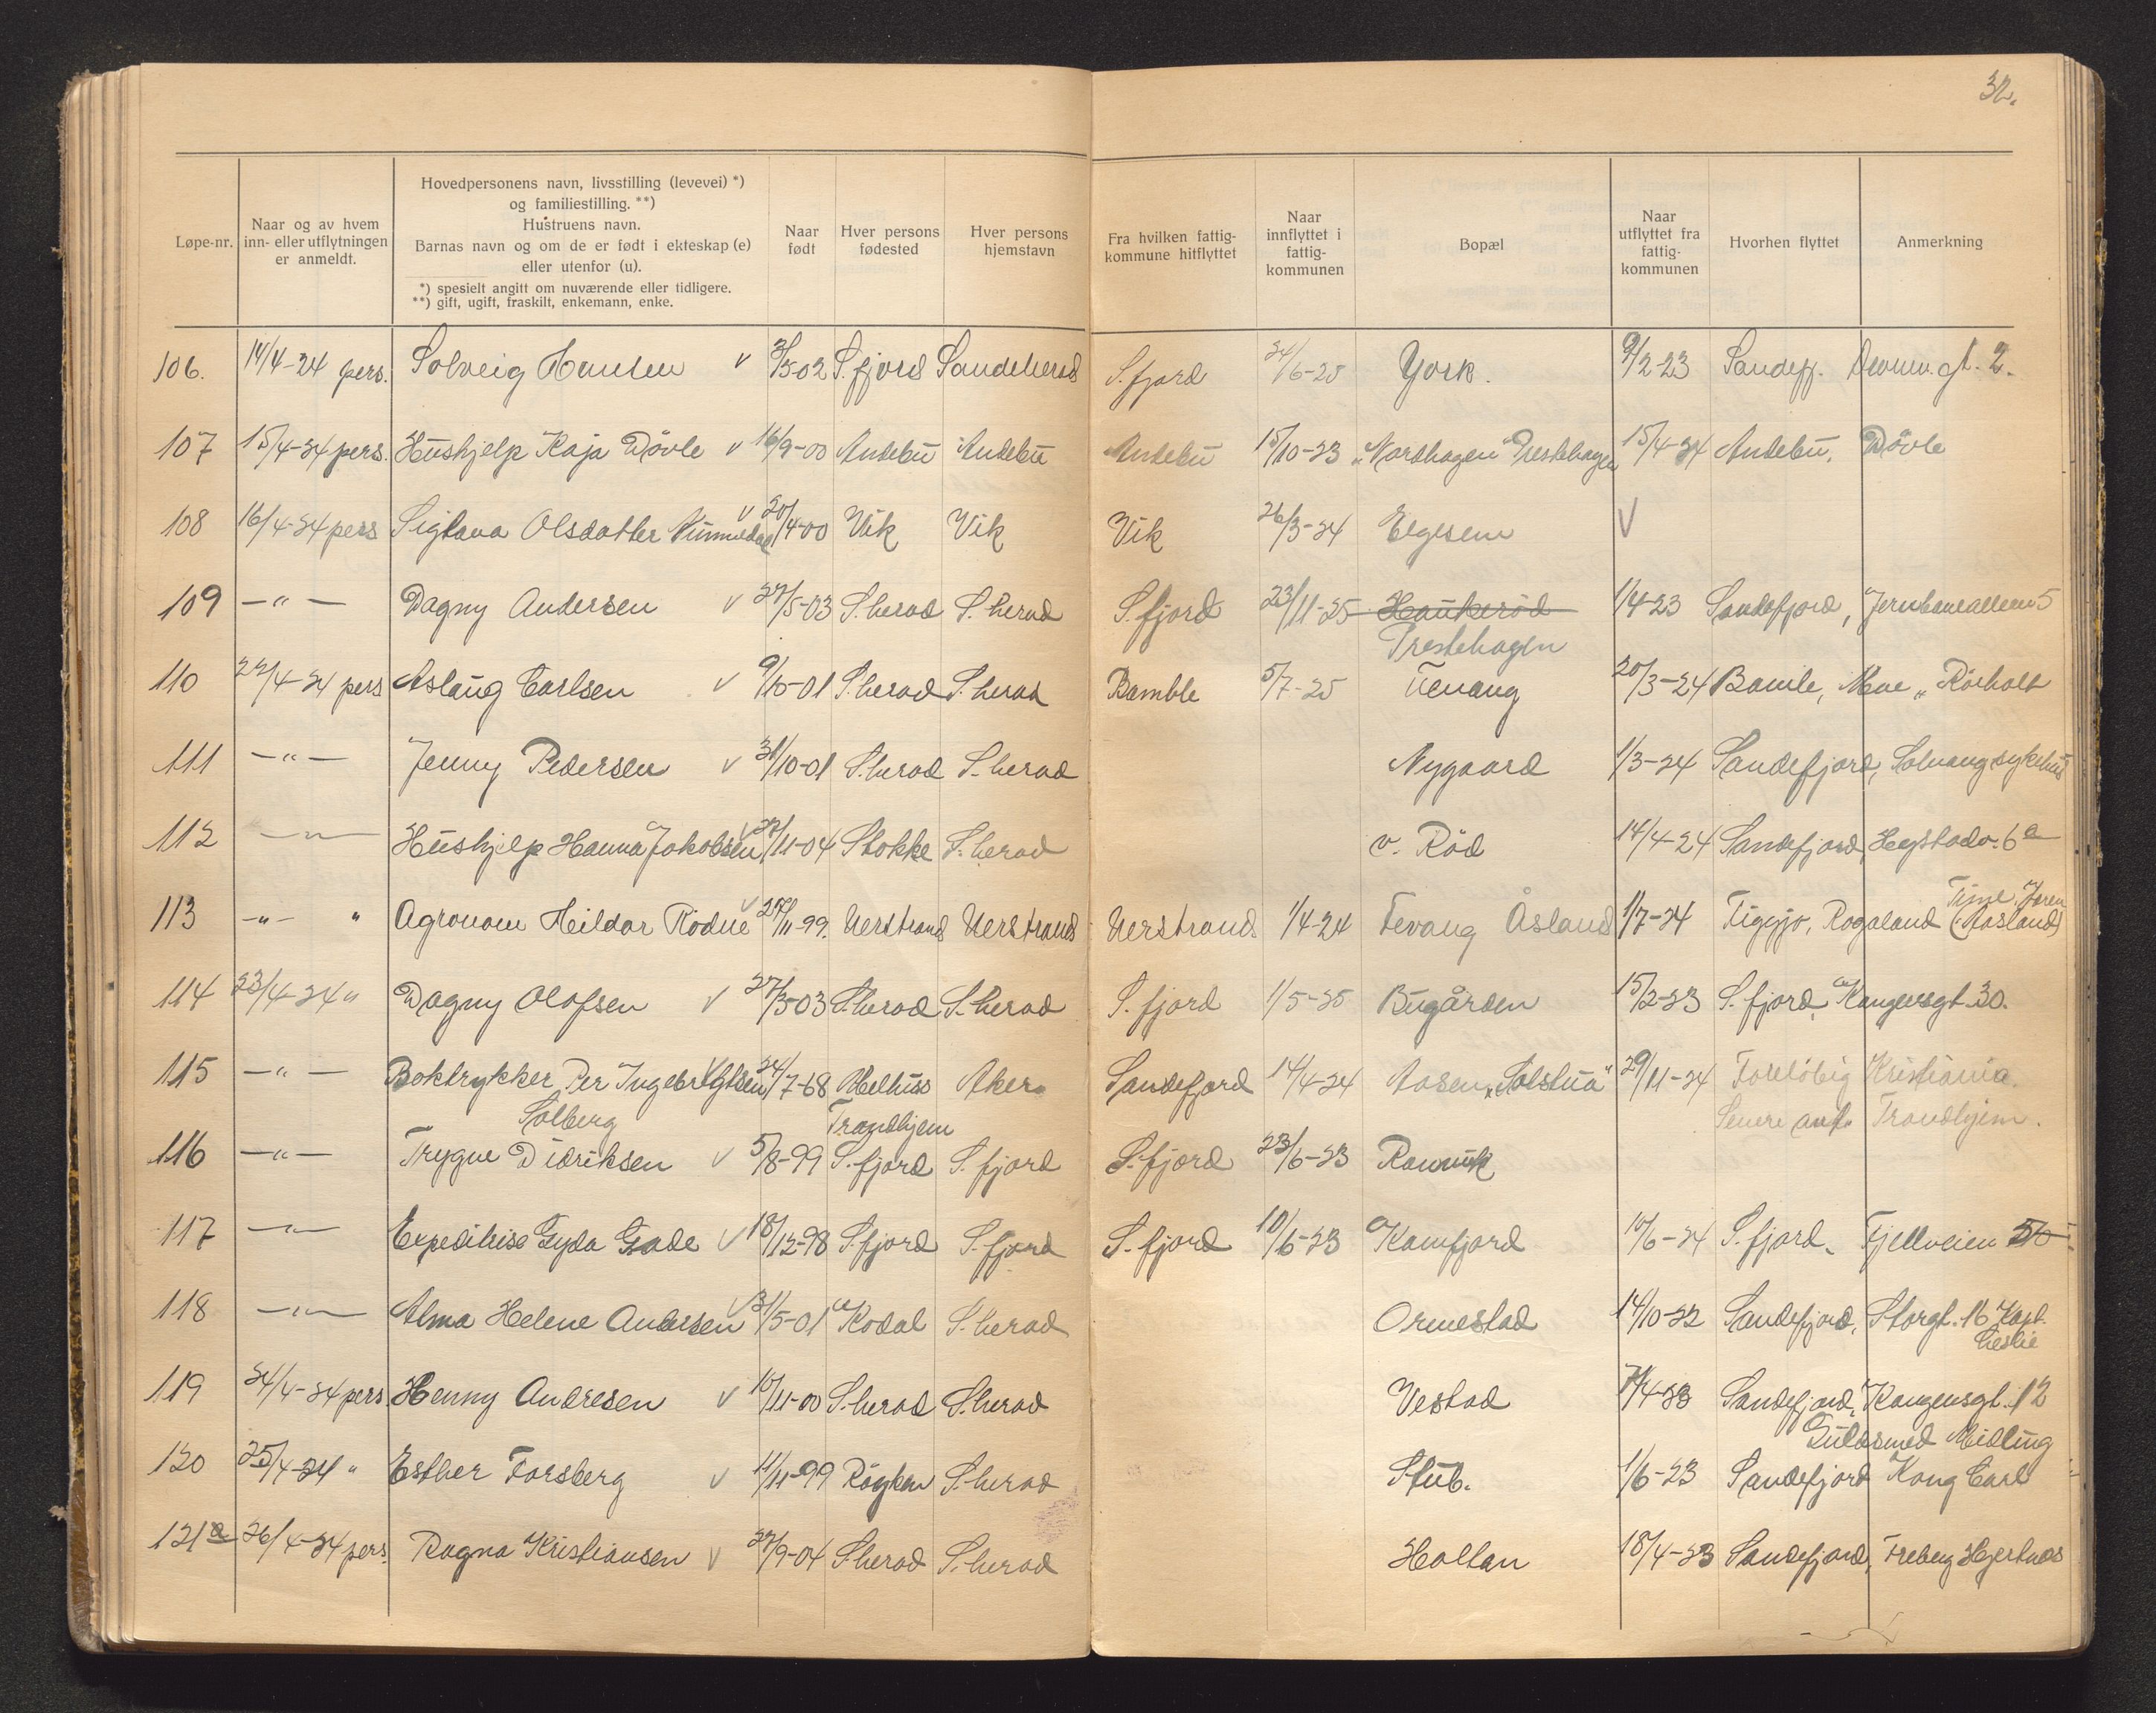 32.
Løpe-nr.
Naar og av hvem inn- eller utflytningen er anmeldt.
Hovedpersonens navn, livsstilling (levevei) *)
og familiestilling. **)
Hustruens navn.
Barnas navn og om de er født i ekteskap (e)
eller utenfor (u).
*) spesielt angitt om nuværende eller tidligere.
**) gift, ugift, fraskilt, enkemann, enke.
Naar født
Hver persons fødested
Hver persons hjemstavn
Fra hvilken fattigkommune hitflyttet
Naar innflyttet i fattigkommunen
Bopæl
Naar utflyttet fra fattigkommunen
Hvorhen flyttet
Anmerkning
106. 14/4-24 pers. Solveig Hansen v 3/5-02 S.fjord Sandeherad S.fjord 24/6-25 York. 9/2-23 Sandefj. Dronn.gt. 2.
107 15/4-24 pers. Hushjelp Kaja Døvle v 16/9-00 Andebu Andebu Andebu 15/10-23 "Nordhagen" Prestehagen 15/4-24 Andebu, Døvle
108 16/4-24 pers Olsdatter v 20/4-00 Vik Vik Vik 26/3-24 Elgesem V
109 -"- Dagny Andersen v 27/5-03 S.herad S.herad S.fjord 23/11-25 Haukerød 1/4-23 Sandefjord, Jernbanealleen 5
Prestehagen
110 22/4-24 pers Aslaug Carlsen v 9/10-01 S.herad S.herad Bamble 5/7-25 20/3-24 Bamle, "Rørholt
111 -"- Jenny Pedersen v 31/10-01 S.herad S.herad Nygaard 1/3-24 Sandefjord, Solvang sykehus
112 -"- Hushjelp Hanna Jakobsen v 27/11-04 Stokke S.herad v. Rød 14/4-24 Sandefjord, 6a
113 -"- " Agronom Heildor Rødne v 29/11-99. Nerstrand Nerstrand Nerstrand 1/4-24 Fevang Åsland 1/7-24 Figgjo, Rogaland (Aasland)
Time, Jæren
114 23/4-24 " Dagny Olofsen v 27/3-03 S.herad S.herad S.fjord 1/5-25 Bugården 15/2-23 S.fjord, Kongensgt. 30.
115 -"- Boktrykker Per Ingebrigtsen 24/7-68 Melhuss Aker Sandefjord 14/4-24 Aasen, "Solstua" 29/11-24 Foreløbig Kristiania.
Solberg Trondhjem Senere ant. Trondhjem.
116 -"- Trygve Didriksen v 5/8-99 S.fjord S.fjord S.fjord 23/6-23 Ranvik
117 -"- Expeditrise Gyda Gade v 18/12-98 S.fjord S.fjord S.fjord 10/6-23 Kamfjord 10/6-24 S.fjord, Fjellveien
118 -"- Alma Helene Andersen v 31/5-01 Kodal S.herad Ormestad 14/10-22 Sandefjord, Storgt. 16 Kapt.
119 24/4-24 pers Henny Andresen v 10/11-00 S.herad S.herad Vestad 7/4-23 Sandefjord, Kongensgt. 12
Guldsmed Midling
120 25/4-24 " Esther Forsberg v 11/11-99 Røyken S.herad Stub. 1/6-23 Sandefjord Kong Carl
121a 26/4-24 pers. Ragna Kristiansen v 27/9-04 S.herad S.herad Holtan 18/4-23 Sandefjord, Freberg Hjertnes